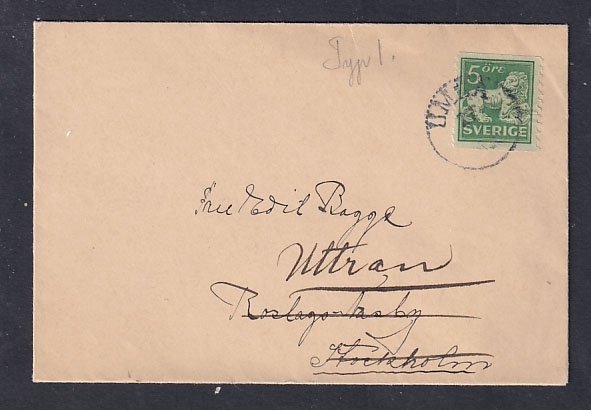 Typ 1.
5 ÖRE
SVERIGE
UMEÅ
Edit Bagge
Uttran
Roslags-Näsby
Stockholm